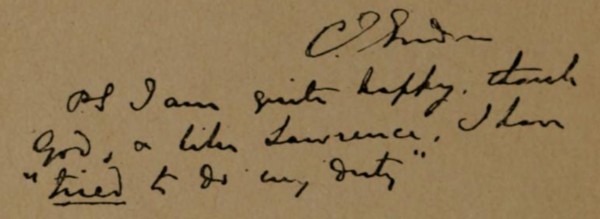 C. G. Gordon
PS I am quite happy, thank
God, & like Lawrence, I have
"tried to do my duty"